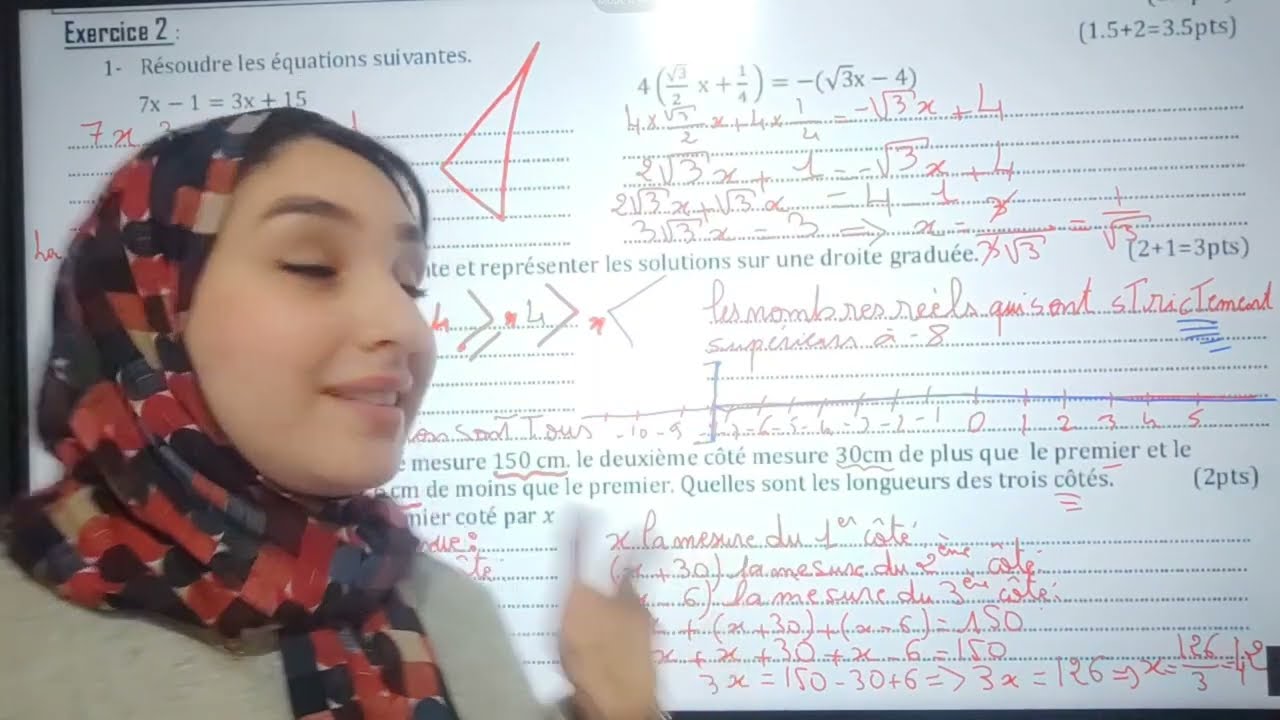 Exercice 2 :
(1.5+2=3.5pts)
1- Résoudre les équations suivantes.
7x − 1 = 3x + 15
7x
4(√3/2 x + 1/4) = −(√3x − 4)
4 × √3/2 x + 4 × 1/4 = -√3 x + 4
2√3 x + 1 = -√3 x + 4
2√3 x + √3 x = 4 - 1
3√3 x = 3 => x = 3/3√3 = 1/√3
(2+1=3pts)
et représenter les solutions sur une droite graduée.
les nombres réels qui sont strictement
supérieurs à -8
sont Tous
-10 -9 -7 -6 -5 -4 -3 -2 -1 0 1 2 3 4 5
mesure 150 cm. le deuxième côté mesure 30cm de plus que le premier et le
cm de moins que le premier. Quelles sont les longueurs des trois côtés.
(2pts)
coté par x
x la mesure du 1er côté
(x + 30) la mesure du 2ème côté
6) la mesure du 3ème côté.
+ (x+30) + (x - 6) = 150
x + x + 30 + x - 6 = 150
3x = 150 - 30 + 6 => 3x = 126 => x = 126/3 = 42